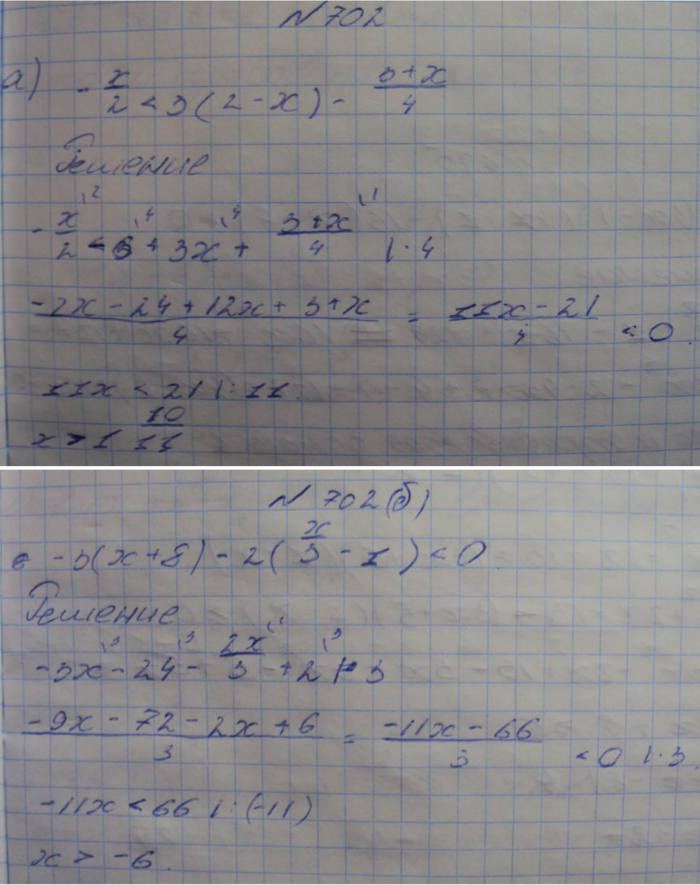 N 702
а) - x/2 < 3(2 - x) - 3+x/4
Решение
- x/2 \2 < 6 \4 + 3x \4 + 3+x/4 \1 | · 4
-2x - 24 + 12x + 3 + x / 4 = 11x - 21 / 4 < 0.
11x < 21 | : 11.
x > 1 10/11
N 702(б)
-3(x+8) - 2(x/3 - 1) < 0
Решение
-3x \3 - 24 \3 - 2x/3 \1 + 2 \3 | · 3
-9x - 72 - 2x + 6 / 3 = -11x - 66 / 3 < 0 | · 3.
-11x < 66 | : (-11)
x > -6.